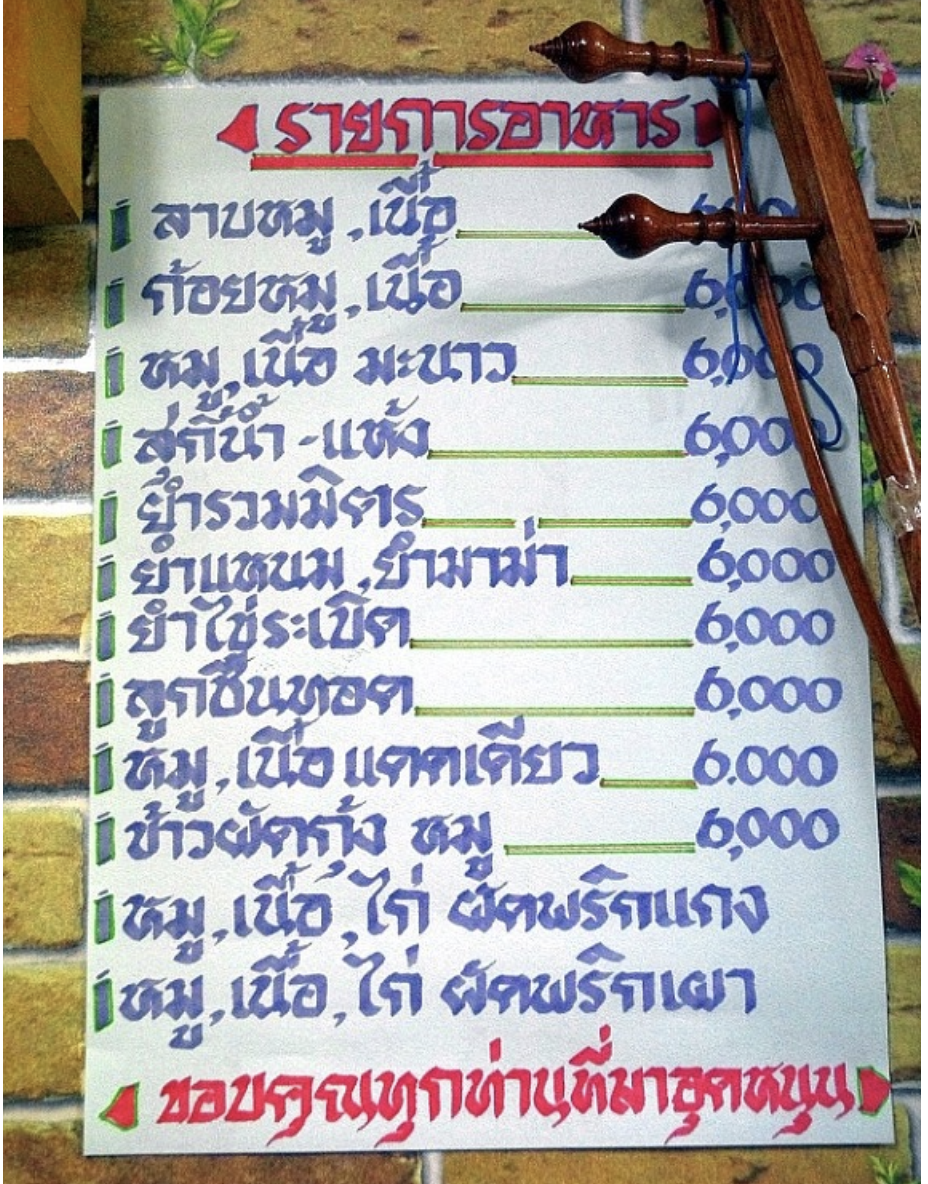 รายการอาหาร
ลาบหมู ,เนื้อ 6,000
ก้อยหมู ,เนื้อ 6,000
หมู ,เนื้อ มะนาว 6,000
สุกี้น้ำ - แห้ง 6,000
ยำรวมมิตร 6,000
ยำแหนม ,ยำมาม่า 6,000
ยำไข่ระเบิด 6,000
ลูกชิ้นทอด 6,000
หมู ,เนื้อ แดดเดียว 6.000
ข้าวผัดกุ้ง หมู 6,000
หมู ,เนื้อ ,ไก่ ผัดพริกแกง
หมู ,เนื้อ ,ไก่ ผัดพริกเผา
ขอบคุณทุกท่านที่มาอุดหนุน